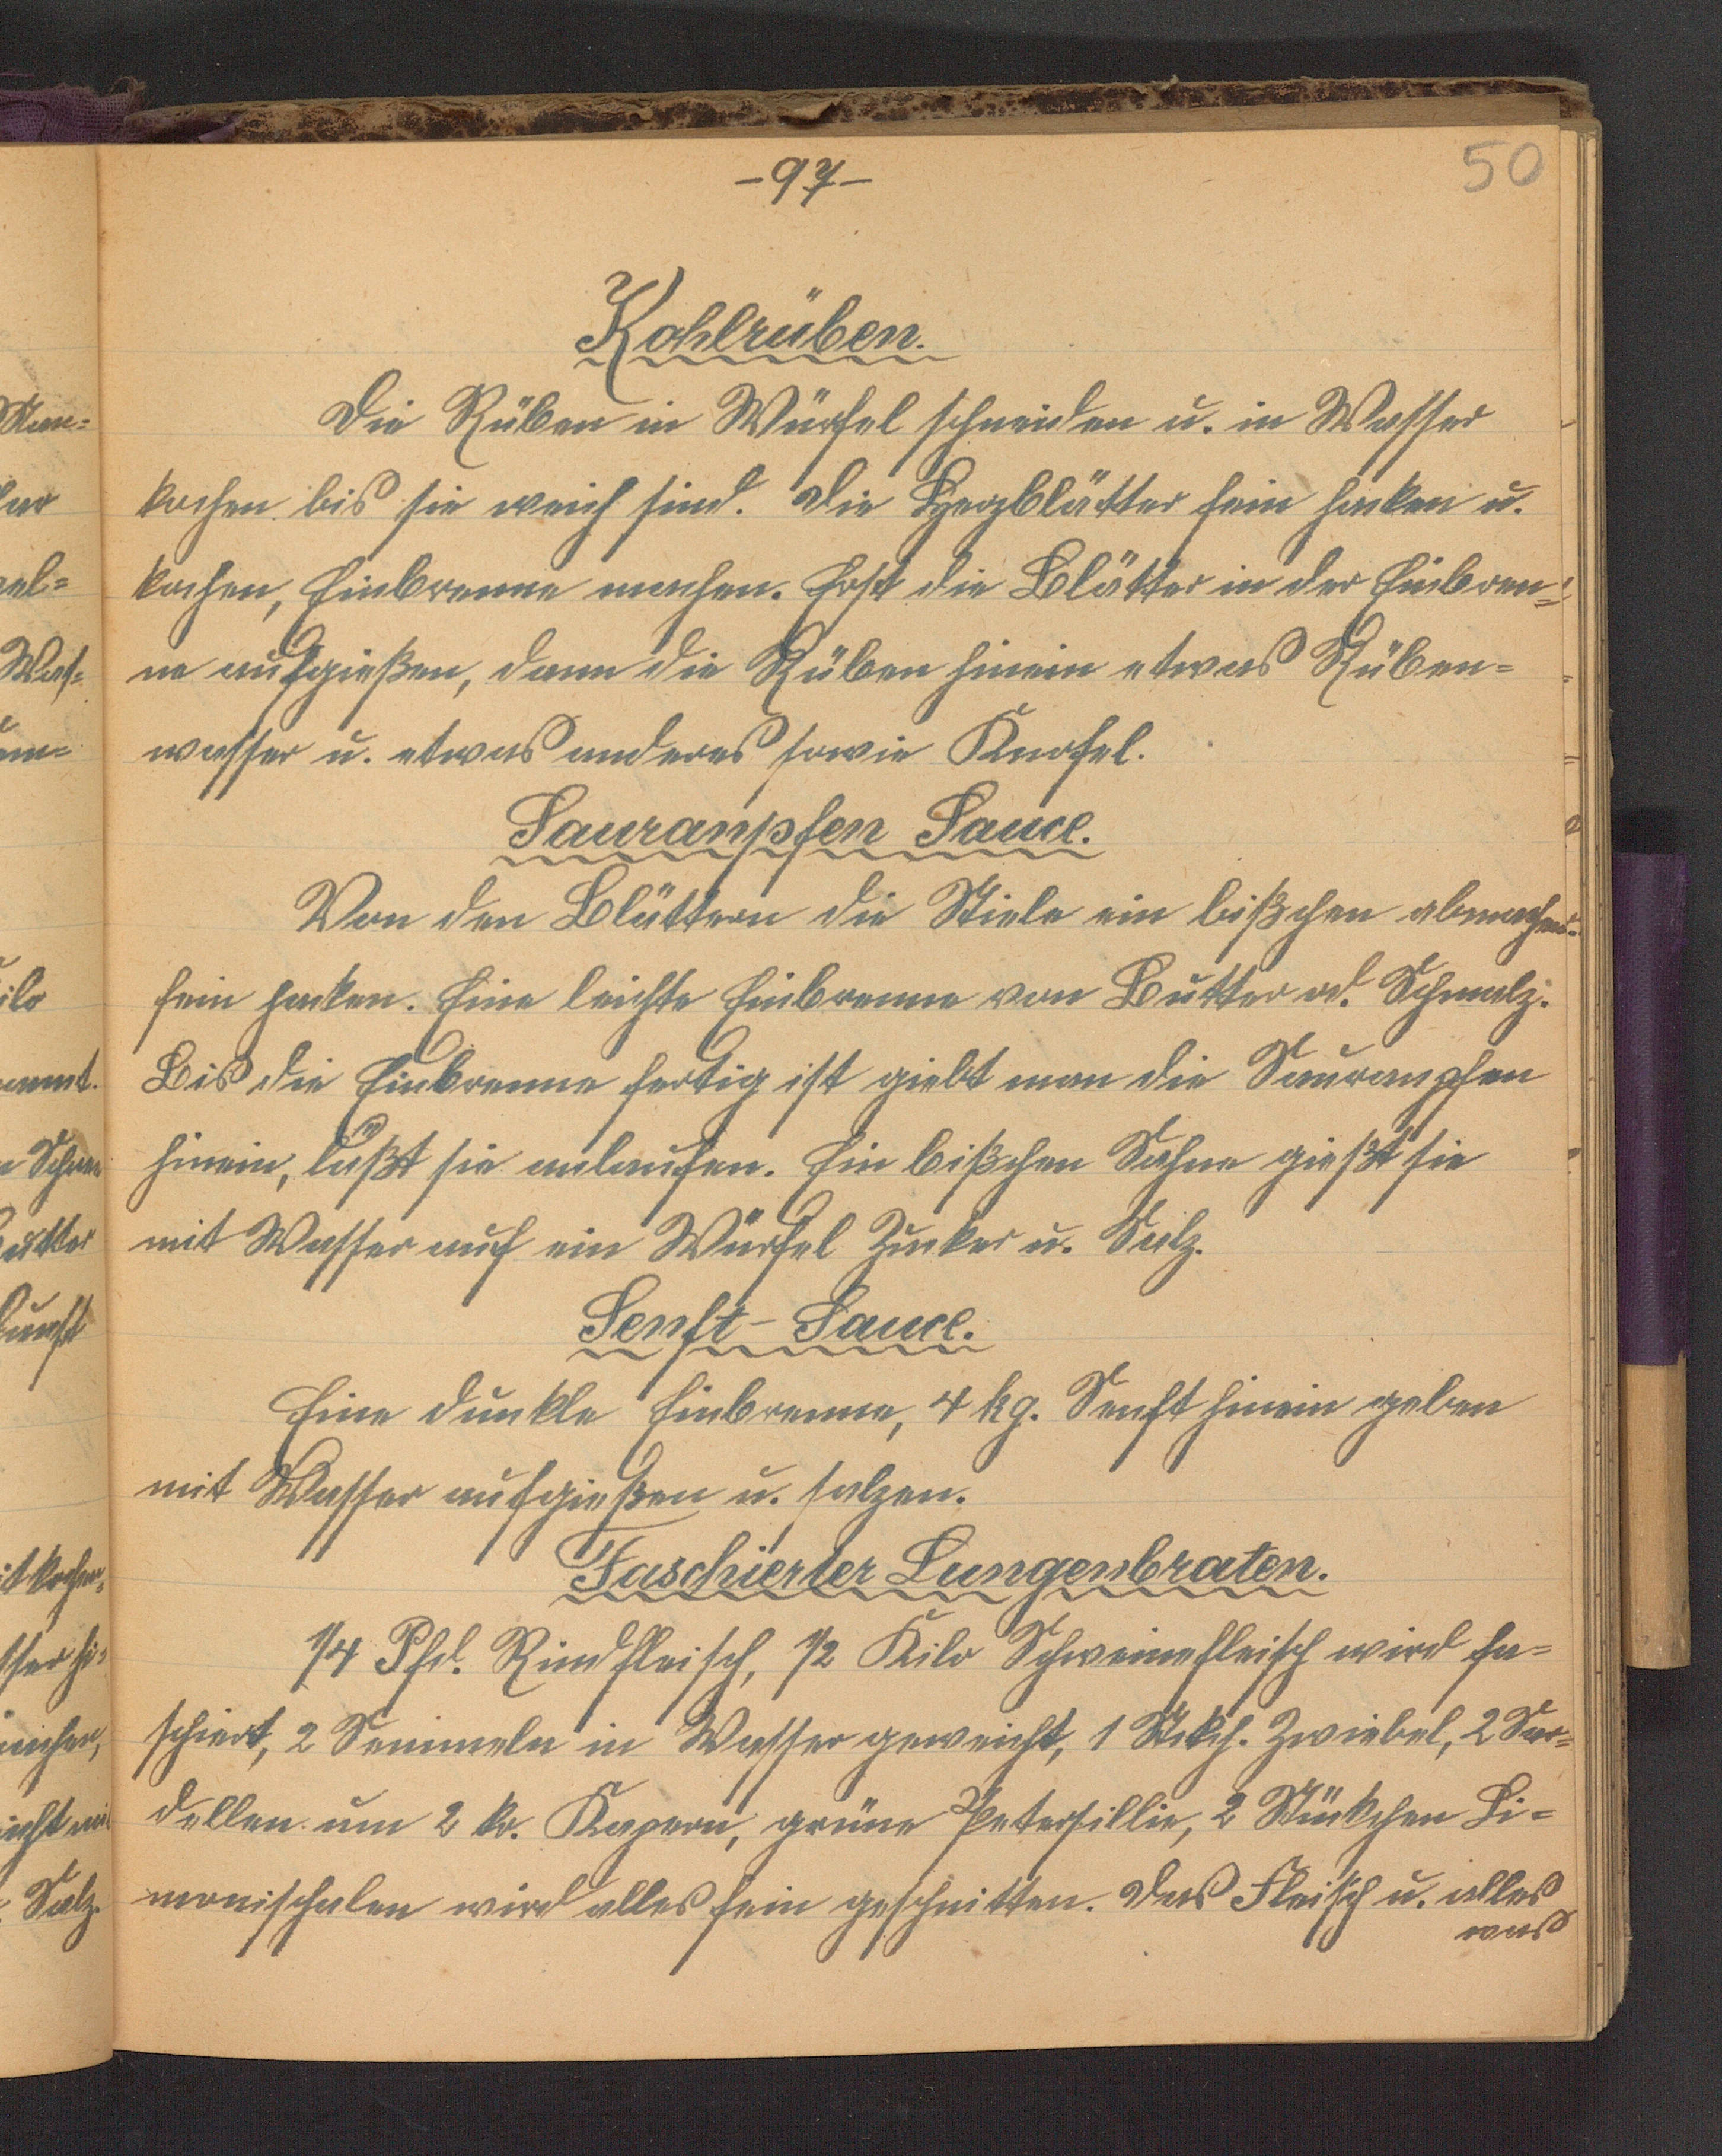 -97-
50
Kohlrüben.
Die Rüben in Würfel schneiden u. in Wasser
kochen bis sie weich sind. Die Herzblätter fein hacken u.
kochen, Einbrenne machen. Erst die Blätter in der Einbren=
ne aufgießen, dann die Rüben hinein etwas Rüben=
wasser u. etwas anderes sowie Knofel.
Sauranpfen Sauce.
Von den Blättern die Stiele ein bißchen abmachen.
fein hacken. Eine leichte Einbrenne von Butter od. Schmalz.
Bis die Einbrenne fertig ist giebt man die Sauranpfen
hinein, läßt sie anlaufen. Ein bißchen Sahne gießt sie
mit Wasser auf ein Würfel Zucker u. Salz.
Senft-Sauce.
Eine dunkle Einbrenne, 4 kg. Senft hinein geben
mit Wasser aufgießen u. salzen.
Faschierter Lungenbraten.
1/4 Pfd. Rindfleisch, 1/2 Kilo Schweinefleisch wird fa=
schiert, 2 Semmeln in Wasser geweicht, 1 Stkch. Zwiebel, 2 Sar=
dellen um 2 kr. Kapern, grüne Petersillie, 2 Stückchen Li=
monischalen wird alles fein geschnitten. Das Fleisch u. alles
was